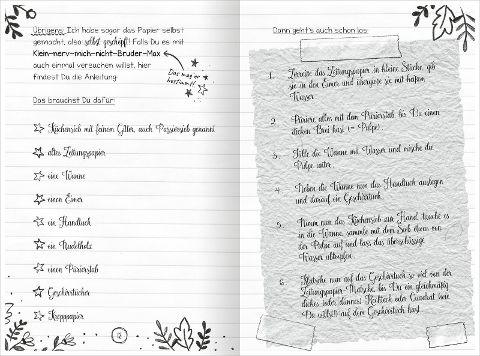 Übrigens: Ich habe sogar das Papier selbst
gemacht, also selbst geschöpft! Falls Du es mit
Klein-nerv-mich-nicht-Bruder-Max
auch einmal versuchen willst, hier
findest Du die Anleitung.
Das mag er
bestimmt!
Das brauchst Du dafür:
Küchensieb mit feinem Gitter, auch Passiersieb genannt
altes Zeitungspapier
eine Wanne
einen Eimer
ein Handtuch
ein Nudelholz
einen Pürierstab
Geschirrtücher
Krepppapier
12
Dann geht's auch schon los:
1. Zerreiße das Zeitungspapier in kleine Stücke, gib
sie in den Eimer und übergieße sie mit
Wasser.
2. Püriere alles mit dem Pürierstab bis Du einen
dicken Brei hast (= Pulpe).
3. Fülle die Wanne mit Wasser und mische die
Pulpe unter.
4. Neben die Wanne nun das Handtuch auslegen
und darauf ein Geschirrtuch.
5. Nimm nun das Küchensieb zur Hand, tauche es
in die Wanne, sammle mit dem Sieb etwas von
der Pulpe auf und lass das überschüssige
Wasser abtropfen.
6. Klatsche nun auf das Geschirrtuch so viel von der
Zeitungspapier-Matsche, bis Du ein gleichmäßig
dickes (oder dünnes) Rechteck oder Quadrat (wie
Du willst) auf dem Geschirrtuch hast.